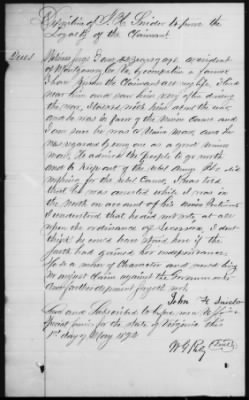 Deposition of J. H. Snider to prove the
Loyalty of the Claimant
Witness says I am years age, a resident
of Montgomery Co Va, by occupation a farmer
I have known the Claimant all my life, I lived
near him and saw him very often during
the war, I talked with him about the war
and he was in favor of the Union cause and
I am sure he was a Union man, and he
was regarded by every one as a good Union
man. He advised the people to go north
and to keep out of the rebel army. He did
nothing for the rebel cause, I was told
that he was arrested while it was in
the north on account of his Union Principles
I understood that he did not vote at all
when the ordinance of Secession, I dont
think he could have stood here if the
South had gained her independence
He is a man of Character and would bring
no unjust claim against the Government
And further deponent sayeth not.
John H Snider
Sworn and Subscribed to before me
Special for the State of Virginia this
1st day of May 1872